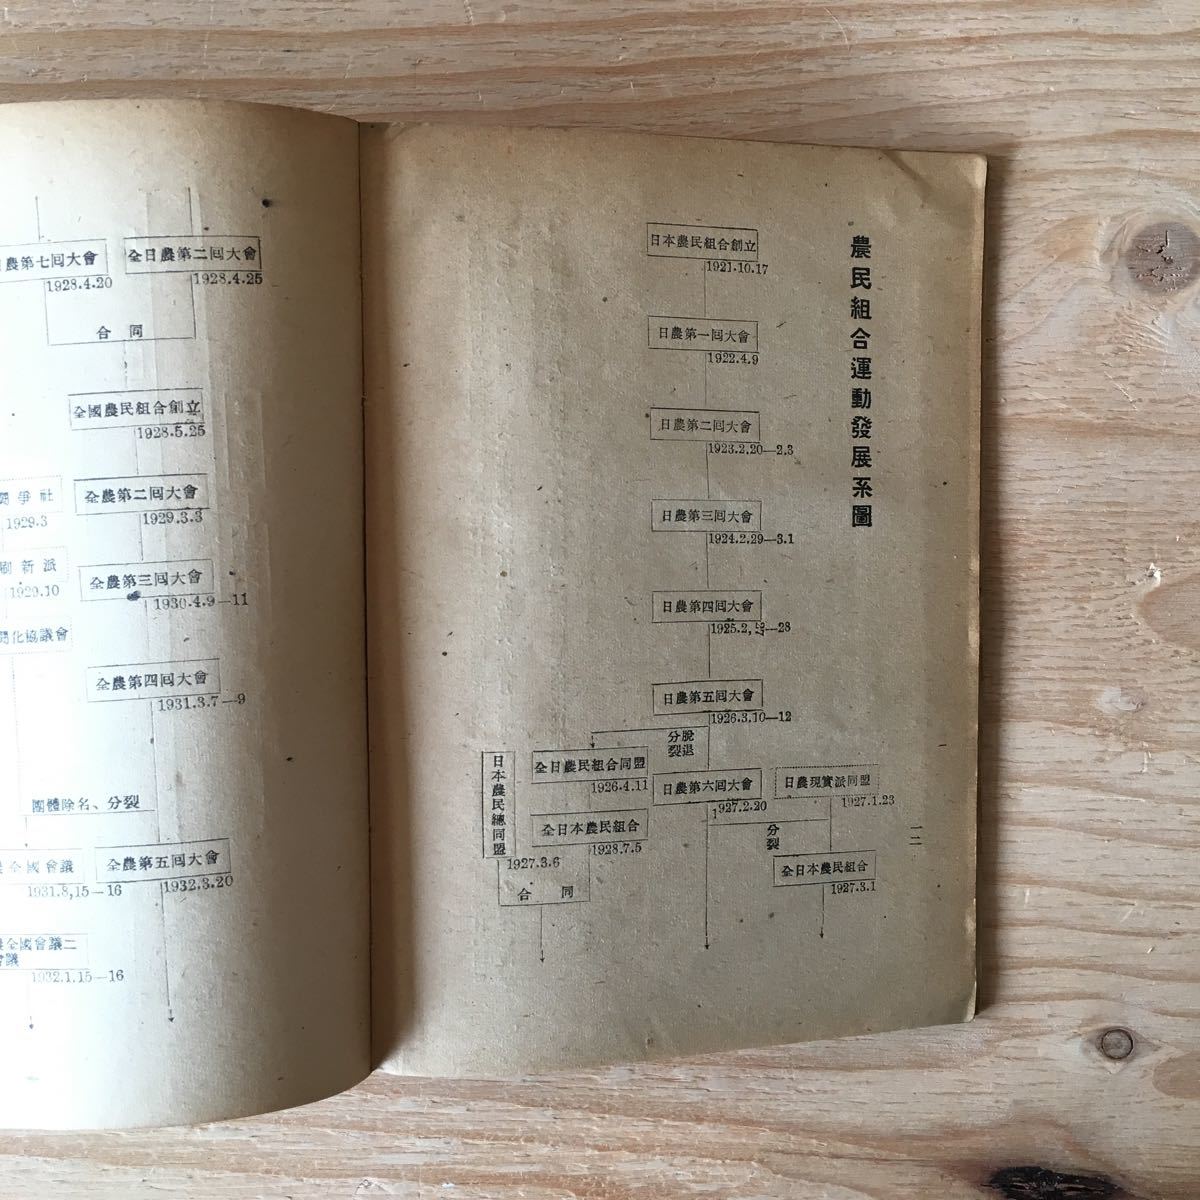 農民組合運動發展系圖
日本農民組合創立
1921.10.17
日農第一囘大會
1922.4.9
日農第二囘大會
1923.2.20—2.3
日農第三囘大會
1924.2.29—3.1
日農第四囘大會
1925.2,27—28
日農第五囘大會
1926.3.10—12
脫退
分裂
日農現實派同盟
1927.1.23
日農第六囘大會
1927.2.20
分裂
全日本農民組合
1927.3.1
全日農民組合同盟
1926.4.11
全日本農民組合
1928.7.5
日本農民總同盟
1927.3.6
合同
一二
全日農第二囘大會
1928.4.25
日農第七囘大會
1928.4.20
合同
全國農民組合創立
1928.5.25
全農第二囘大會
1929.3.3
鬪爭社
1929.3
全農第三囘大會
1930.4.9—11
刷新派
1929.10
鬪化協議會
全農第四囘大會
1931.3.7—9
團體除名、分裂
全農第五囘大會
1932.3.20
農全國會議
1931.8,15—16
農全國會議二
會議
1932.1.15—16